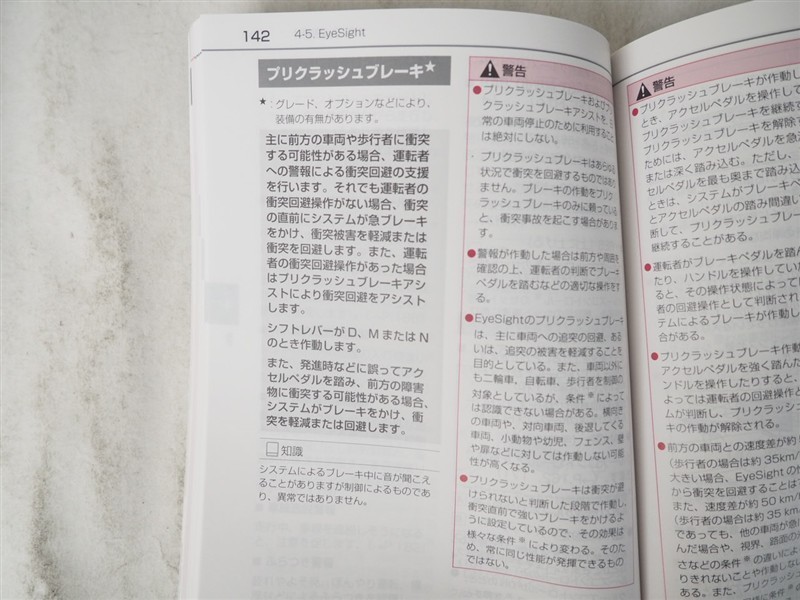 142 4-5. EyeSight
プリクラッシュブレーキ★
★:グレード、オプションなどにより、
装備の有無があります。
主に前方の車両や歩行者に衝突
する可能性がある場合、運転者
への警報による衝突回避の支援
を行います。それでも運転者の
衝突回避操作がない場合、衝突
の直前にシステムが急ブレーキ
をかけ、衝突被害を軽減または
衝突を回避します。また、運転
者の衝突回避操作があった場合
はプリクラッシュブレーキアシ
ストにより衝突回避をアシスト
します。
シフトレバーが D、M または N
のとき作動します。
また、発進時などに誤ってアク
セルペダルを踏み、前方の障害
物に衝突する可能性がある場合、
システムがブレーキをかけ、衝
突を軽減または回避します。
知識
システムによるブレーキ中に音が聞こえ
ることがありますが制御によるものであ
り、異常ではありません。
警告
●プリクラッシュブレーキおよびプ
クラッシュブレーキアシストを、
常の車両停止のために利用すること
は絶対にしない。
プリクラッシュブレーキはあらゆる
状況で衝突を回避するものではあり
ません。ブレーキの作動をプリク
ラッシュブレーキのみに頼っている
と、衝突事故を起こす場合がありま
す。
●警報が作動した場合は前方や周囲を
確認の上、運転者の判断でブレーキ
ペダルを踏むなどの適切な操作をす
る。
●EyeSightのプリクラッシュブレーキ
は、主に車両への追突の回避、ある
いは、追突の被害を軽減することを
目的としている。また、車両以外に
も二輪車、自転車、歩行者を制御の
対象としているが、条件※によって
は認識できない場合がある。横向き
の車両や、対向車両、後退してくる
車両、小動物や幼児、フェンス、壁
や扉などに対しては作動しない可能
性が高くなる。
●プリクラッシュブレーキは衝突が避
けられないと判断した段階で作動し、
衝突直前で強いブレーキをかけるよ
うに設定しているので、その効果は
様々な条件※により変わる。そのた
め、常に同じ性能が発揮できるもの
ではない。
警告
●プリクラッシュブレーキが作動し
とき、アクセルペダルを操作して
プリクラッシュブレーキを継続す
プリクラッシュブレーキを解除す
ためには、アクセルペダルを急
または深く踏み込む。ただし、
セルペダルを最も奥まで踏み込
ときは、システムがブレーキペ
とアクセルペダルの踏み間違い
断して、プリクラッシュブレー
継続することがある。
●運転者がブレーキペダルを踏ん
たり、ハンドルを操作してい
ると、その操作状態によって
者の回避操作として判断され
テムによるブレーキが作動し
合がある。
●プリクラッシュブレーキ作動
アクセルペダルを強く踏んだ
ンドルを操作したりすると、
よっては運転者の回避操作と
ムが判断し、プリクラッシュ
キの作動が解除される。
●前方の車両との速度差が約
（歩行者の場合は約 35km/
大きい場合、EyeSight の
から衝突を回避することは
また、速度差が約 50 km/
（歩行者の場合は約 35 km
であっても、他の車両が急
んだ場合や、視界、路面の
さなどの条件※の違いによ
りきれないことや作動しない
ある。また、プリクラッシ